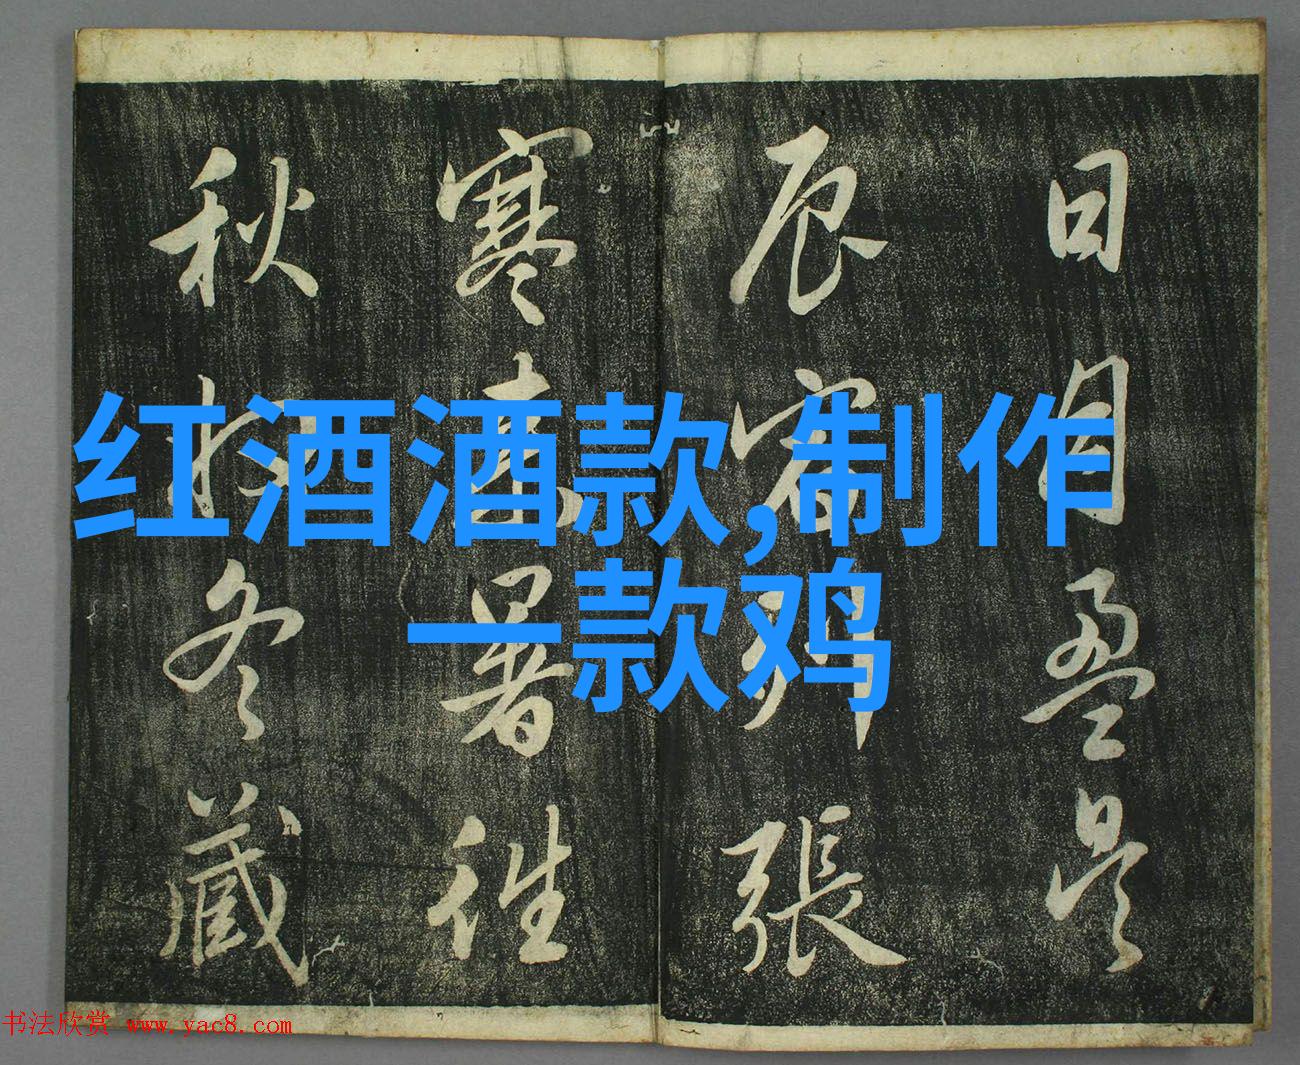 红酒酒款,制作
一款鸡
日月盈昃
辰宿列張
寒来暑往
秋收冬藏
书法欣赏 www.yac8.com